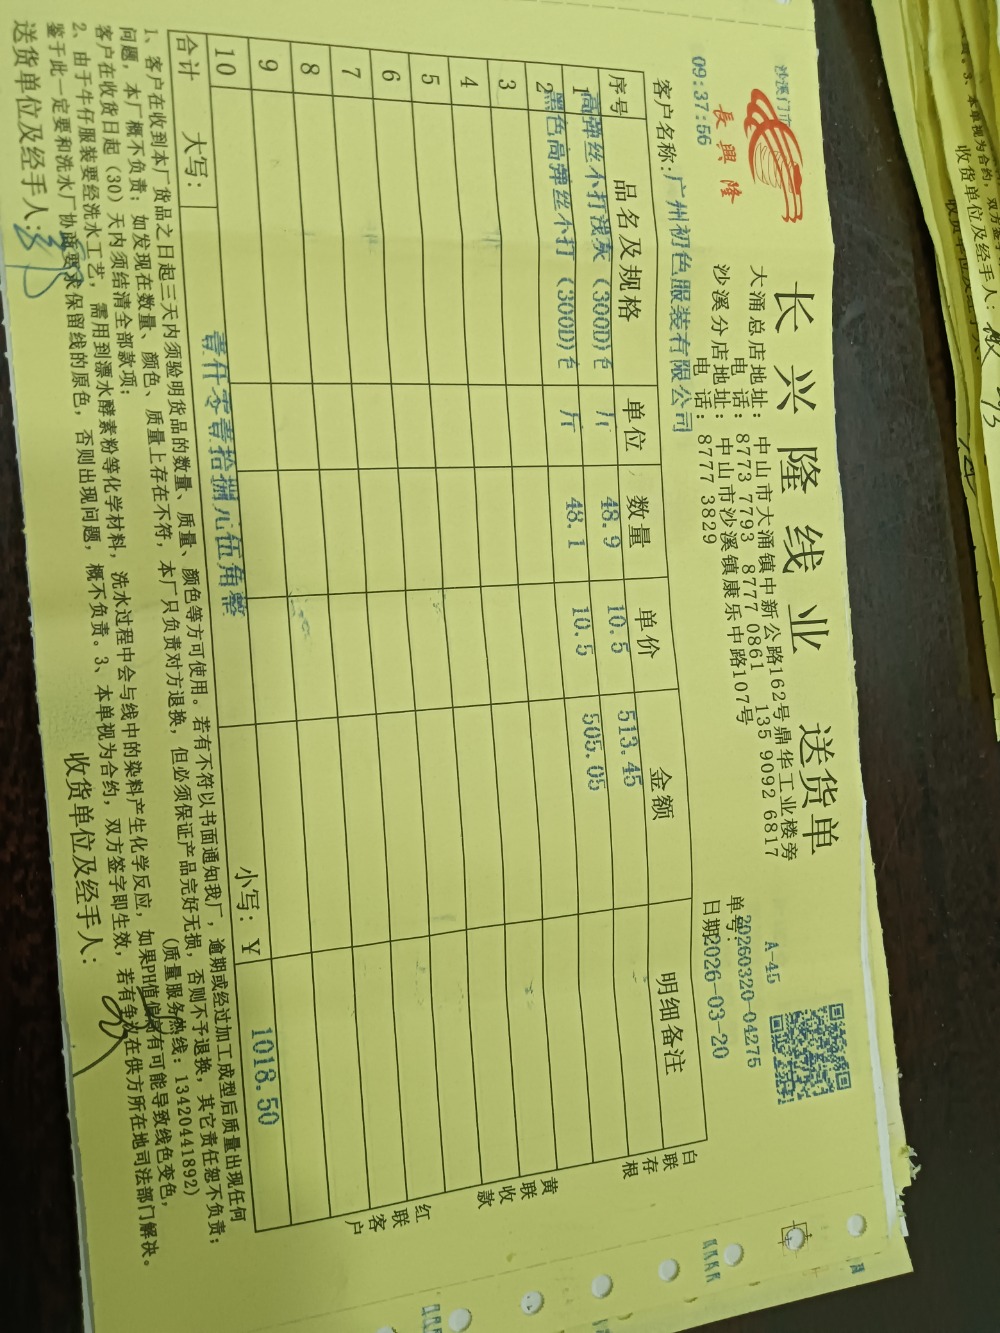 沙溪门市
長興隆
09:37:56
长兴隆线业 送货单
大涌总店地址：中山市大涌镇中新公路162号鼎华工业楼旁
电话：8773 7793 8777 0861 135 9092 6817
沙溪分店地址：中山市沙溪镇康乐中路107号
电话：8777 3829
A-45
单号：20260320-04275
日期2026-03-20
客户名称：广州初色服装有限公司
序号 品名及规格 单位 数量 单价 金额 明细备注
1 高弹丝不打浅灰（300D)色 斤 48.9 10.5 513.45
2 黑色高弹丝不打（300D)色 斤 48.1 10.5 505.05
3
4
5
6
7
8
9
10
合计 大写： 壹仟零壹拾捌元伍角整 小写：¥ 1018.50
白联存根
黄联收款
红联客户
1、客户在收到本厂货品之日起三天内须验明货品的数量、质量、颜色等方可使用。若有不符以书面通知我厂，逾期或经过加工成型后质量出现任何
问题，本厂概不负责；如发现在数量、颜色、质量上存在不符，本厂只负责对方退换，但必须保证产品完好无损，否则不予退换，其它责任恕不负责；
客户在收货日起（30）天内须结清全部款项； （质量服务热线：13420441892）
2、由于牛仔服装要经洗水工艺，需用到漂水酵素粉等化学材料，洗水过程中会与线中的染料产生化学反应，如果PH值偏高有可能导致线色变色，
鉴于此一定要和洗水厂协商要求保留线的原色，否则出现问题，概不负责。3、本单视为合约，双方签字即生效，若有争议在供方所在地司法部门解决。
送货单位及经手人： 收货单位及经手人：
3、本单视为合约，双方
收货单位及经手人：